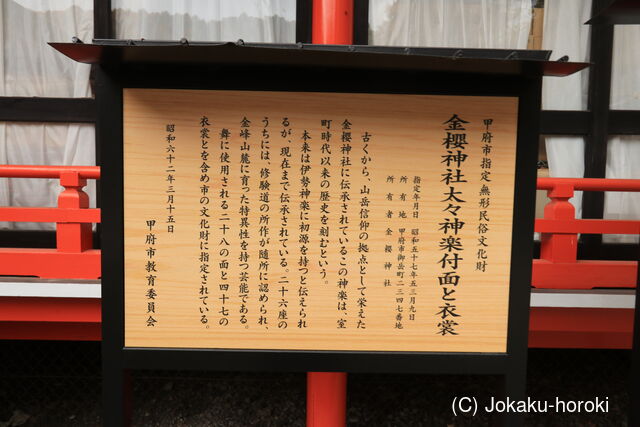 甲府市指定無形民俗文化財
金櫻神社太々神楽付面と衣裳
指定年月日 昭和五十七年五三月九日
所有地 甲府市御岳町二三四七番地
所有者 金櫻神社
古くから、山岳信仰の拠点として栄えた
金櫻神社に伝承されているこの神楽は、室
町時代以来の歴史を刻むという。
本来は伊勢神楽に初源を持つと伝えられ
るが、現在まで伝承されている。二十六座の
うちには、修験道の所作が随所に認められ、
金峰山麓に育った特異性を持つ芸能である。
舞に使用される二十八の面と四十七の
衣裳とを含め市の文化財に指定されている。
昭和六十二年三月十五日
甲府市教育委員会
(C) Jokaku-horoki